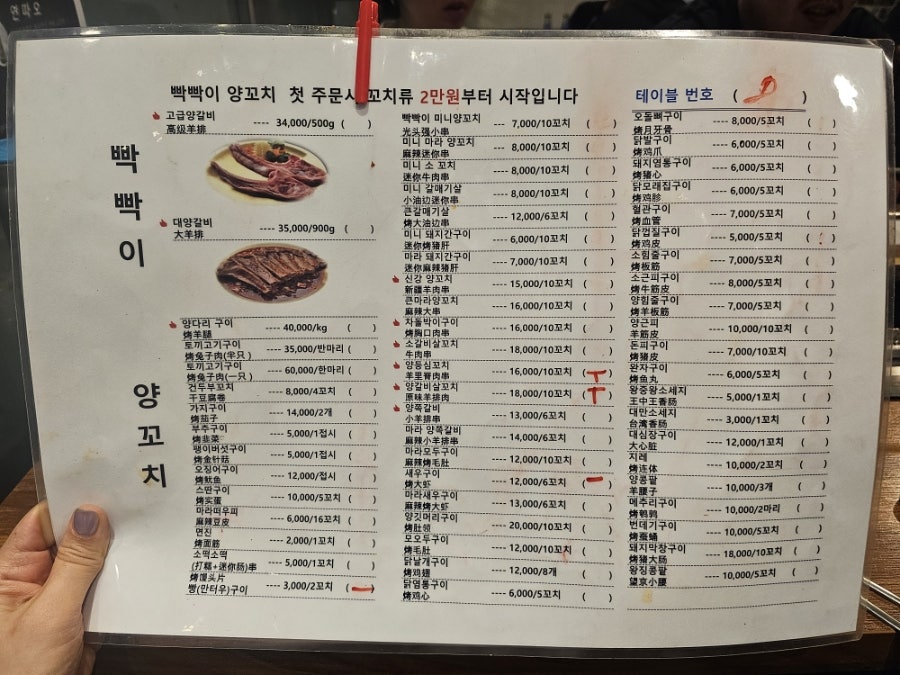 빡빡이 양꼬치 첫 주문시 꼬치류 2만원부터 시작입니다
테이블 번호 ( )
빡빡이
양꼬치
고급양갈비
高级羊排 ---- 34,000/500g ( )
대양갈비
大羊排 ---- 35,000/900g ( )
양다리 구이
烤羊腿 ---- 40,000/kg ( )
토끼고기구이
烤兔子肉(半只) ---- 35,000/반마리 ( )
토끼고기구이
烤兔子肉(一只) ---- 60,000/한마리 ( )
건두부꼬치
干豆腐卷 ---- 8,000/4꼬치 ( )
가지구이
烤茄子 ---- 14,000/2개 ( )
부추구이
烤韭菜 ---- 5,000/1접시 ( )
팽이버섯구이
烤金针菇 ---- 5,000/1접시 ( )
오징어구이
烤鱿鱼 ---- 12,000/접시 ( )
스딴구이
烤实蛋 ---- 10,000/5꼬치 ( )
마라떠우피
麻辣豆皮 ---- 6,000/16꼬치 ( )
면진
烤面筋 ---- 2,000/1꼬치 ( )
소떡소떡
(打糕+迷你肠)串 ---- 5,000/1꼬치 ( )
烤馒头片
빵(만터우)구이 ---- 3,000/2꼬치 ( )
빡빡이 미니양꼬치
光头强小串 ---- 7,000/10꼬치 ( )
미니 마라 양꼬치
麻辣迷你串 ---- 8,000/10꼬치 ( )
미니 소 꼬치
迷你牛肉串 ---- 8,000/10꼬치 ( )
미니 갈매기살
小油边迷你串 ---- 8,000/10꼬치 ( )
큰갈매기살
烤大油边串 ---- 12,000/6꼬치 ( )
미니 돼지간구이
迷你烤猪肝 ---- 6,000/10꼬치 ( )
마라 돼지간구이
迷你麻辣猪肝 ---- 7,000/10꼬치 ( )
신강 양꼬치
新疆羊肉串 ---- 15,000/10꼬치 ( )
큰마라양꼬치
麻辣大串 ---- 16,000/10꼬치 ( )
차돌박이구이
烤胸口肉串 ---- 16,000/10꼬치 ( )
소갈비살꼬치
牛肉串 ---- 18,000/10꼬치 ( )
양등심꼬치
羊里脊肉串 ---- 16,000/10꼬치 ( )
양갈비살꼬치
原味羊排肉 ---- 18,000/10꼬치 ( )
양쪽갈비
小羊排串 ---- 13,000/6꼬치 ( )
마라 양쪽갈비
麻辣小羊排串 ---- 14,000/6꼬치 ( )
마라모두구이
麻辣烤毛肚 ---- 12,000/10꼬치 ( )
새우구이
烤大虾 ---- 12,000/6꼬치 ( )
마라새우구이
麻辣烤大虾 ---- 13,000/6꼬치 ( )
양깃머리구이
烤肚领 ---- 20,000/10꼬치 ( )
모오두구이
烤毛肚 ---- 12,000/10꼬치 ( )
닭날개구이
烤鸡翅 ---- 12,000/8개 ( )
닭염통구이
烤鸡心 ---- 6,000/5꼬치 ( )
오돌뼈구이
烤月牙骨 ---- 8,000/5꼬치 ( )
닭발구이
烤鸡爪 ---- 6,000/5꼬치 ( )
돼지염통구이
烤猪心 ---- 6,000/5꼬치 ( )
닭모래집구이
烤鸡胗 ---- 6,000/5꼬치 ( )
혈관구이
烤血管 ---- 7,000/5꼬치 ( )
닭껍질구이
烤鸡皮 ---- 5,000/5꼬치 ( )
소힘줄구이
烤板筋 ---- 7,000/5꼬치 ( )
소근피구이
烤牛筋皮 ---- 8,000/5꼬치 ( )
양힘줄구이
烤羊板筋 ---- 7,000/5꼬치 ( )
양근피
羊筋皮 ---- 10,000/10꼬치 ( )
돈피구이
烤猪皮 ---- 7,000/10꼬치 ( )
완자구이
烤鱼丸 ---- 6,000/5꼬치 ( )
왕중왕소세지
王中王香肠 ---- 5,000/1꼬치 ( )
대만소세지
台湾香肠 ---- 3,000/1꼬치 ( )
대심장구이
大心脏 ---- 12,000/1꼬치 ( )
지레
烤连体 ---- 10,000/2꼬치 ( )
양콩팥
羊腰子 ---- 10,000/3개 ( )
메추리구이
烤鹌鹑 ---- 10,000/2마리 ( )
번데기구이
烤蚕蛹 ---- 10,000/5꼬치 ( )
돼지막창구이
烤猪大肠 ---- 18,000/10꼬치 ( )
왕징콩팥
望京小腰 ---- 10,000/5꼬치 ( )